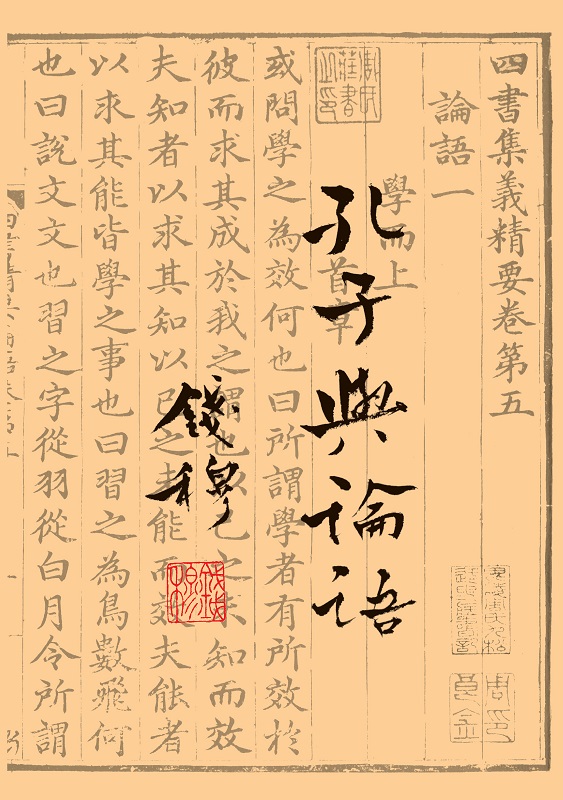 孔子與論語
錢穆
四書集義精要卷第五
論語一
學而上
首章
或問學之為效何也曰所謂學者有所效於
彼而求其成於我之謂也以己之未知而效
夫知者以求其知以己之未能而效夫能者
以求其能皆學之事也曰習之為鳥數飛何
也曰說文文也習之字從羽從白月令所謂